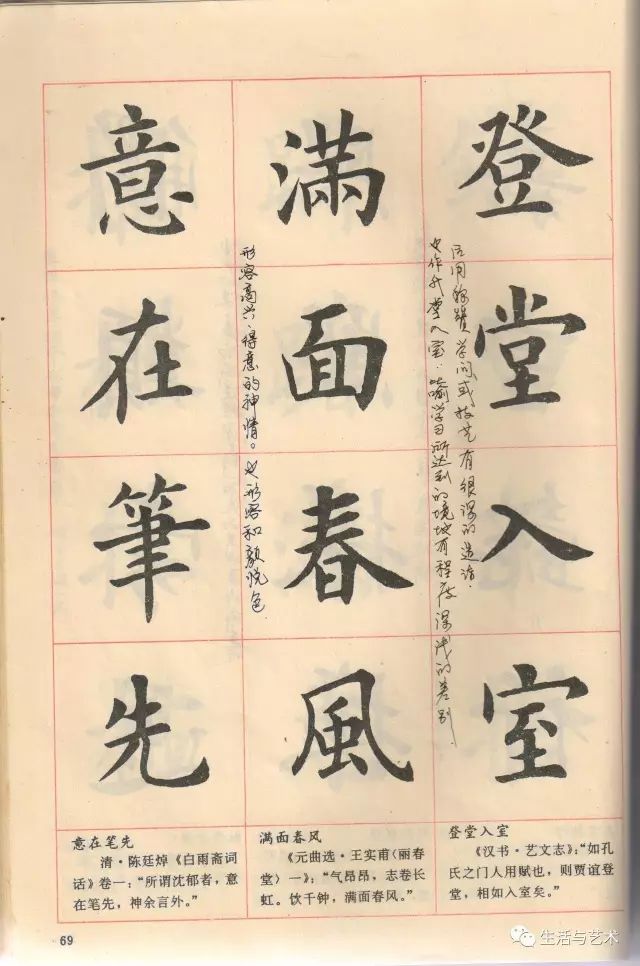 登堂入室
后用称赞学问或技艺有很深的造诣.
也作升堂入室.喻学习所达到的境地有程度深浅的差别.
滿面春風
形容高兴、得意的神情。也形容和颜悦色
意在筆先
登堂入室
《汉书·艺文志》：“如孔
氏之门人用赋也，则贾谊登
堂，相如入室矣。”
满面春风
《元曲选·王实甫〈丽春
堂〉一》：“气昂昂，志卷长
虹。饮千钟，满面春风。”
意在笔先
清·陈廷焯《白雨斋词
话》卷一：“所谓沈郁者，意
在笔先，神余言外。”
69
生活与艺术